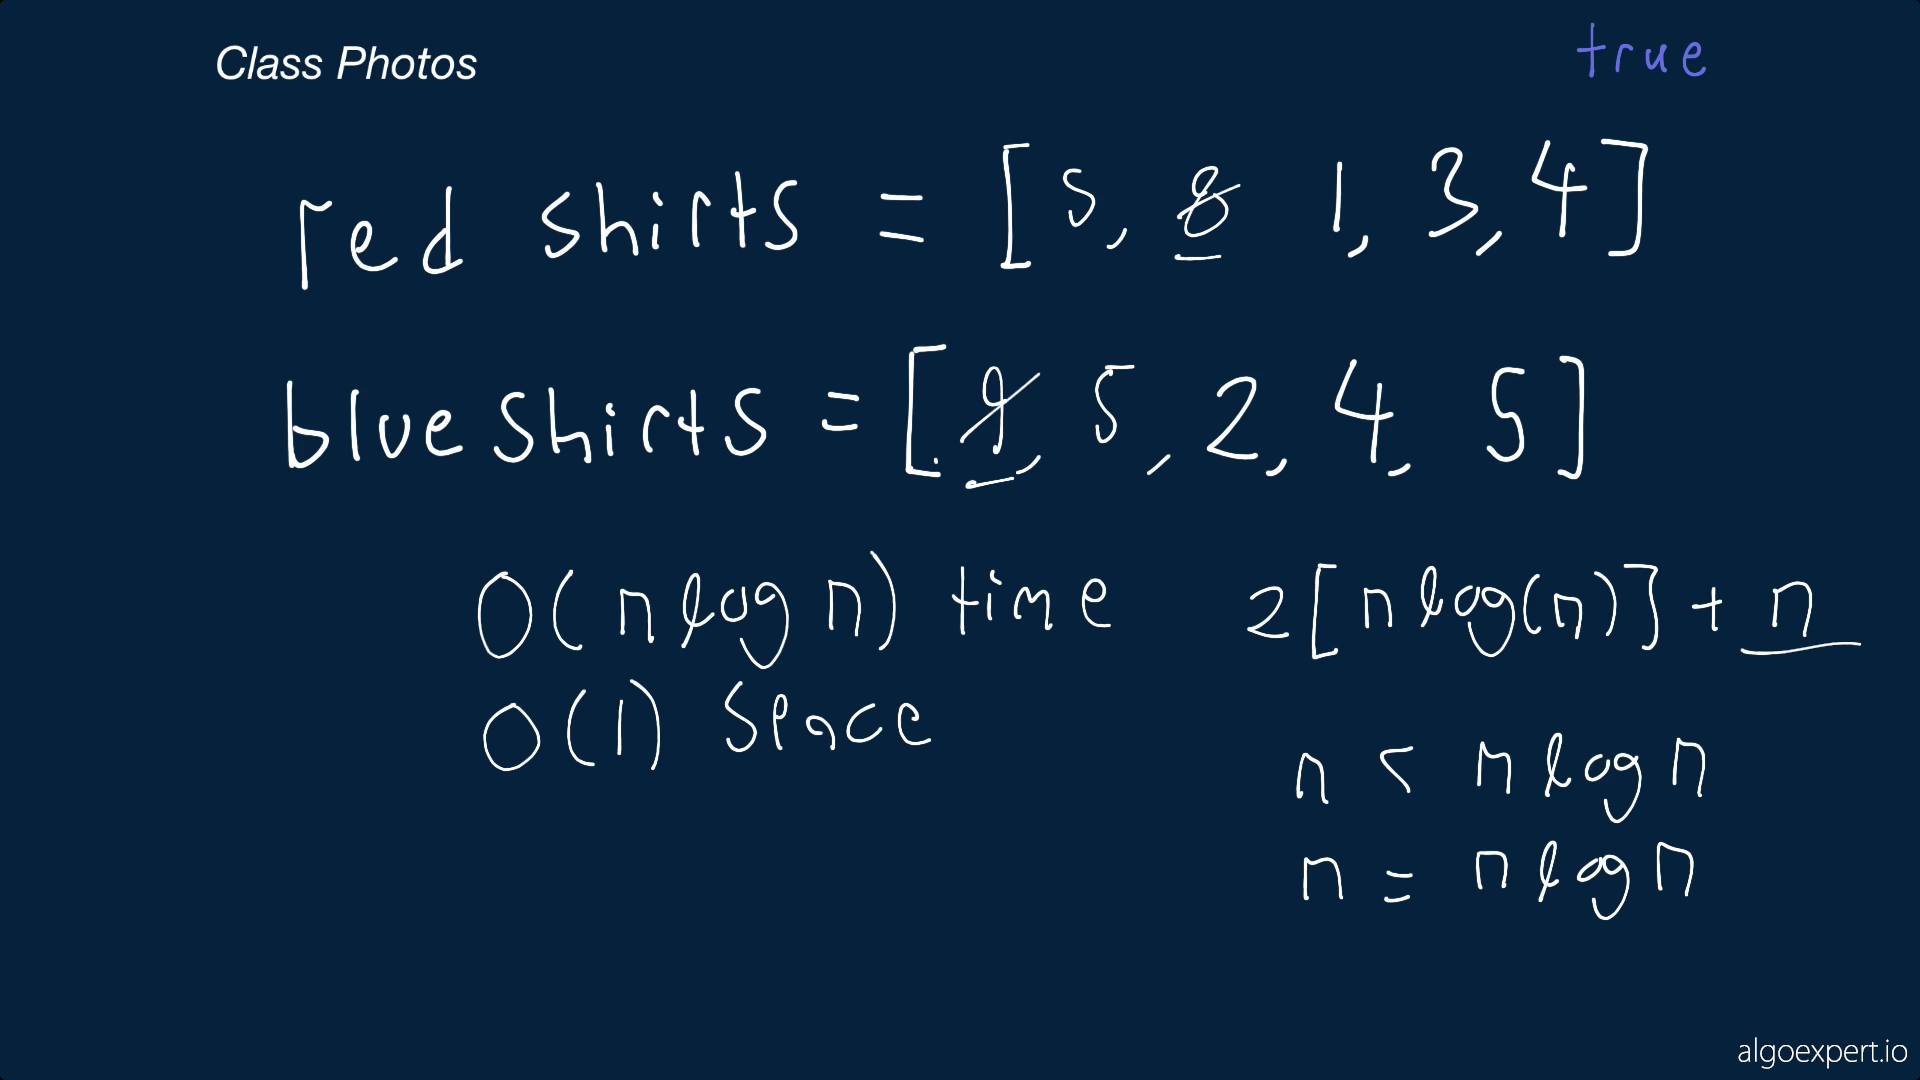 Class Photos
true
red shirts = [5, 8 1, 3, 4]
blue shirts = [9, 5, 2, 4, 5]
O(n log n) time
2[n log(n)] + n
O(1) space
n < n log n
n = n log n
algoexpert.io